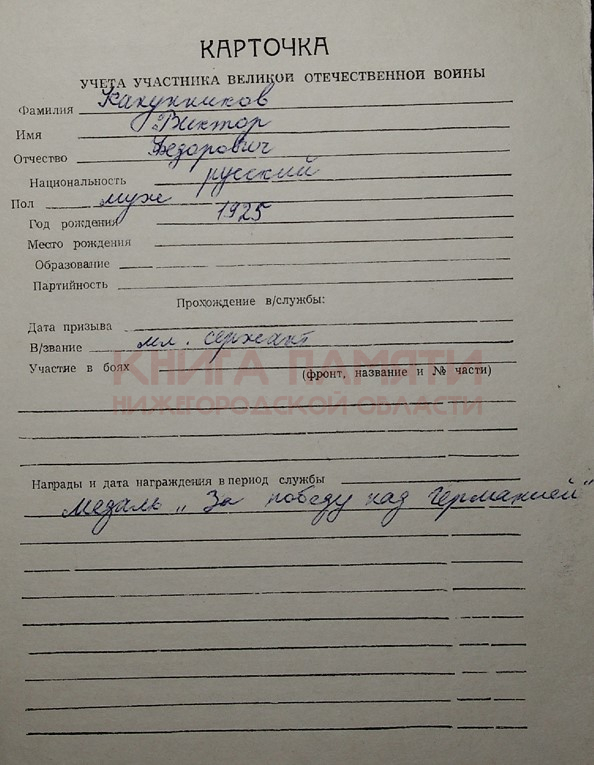 КАРТОЧКА
УЧЕТА УЧАСТНИКА ВЕЛИКОЙ ОТЕЧЕСТВЕННОЙ ВОЙНЫ
Фамилия Кахунников
Имя Виктор
Отчество Федорович
Национальность русский
Пол муж
Год рождения 1925
Место рождения
Образование
Партийность
Прохождение в/службы:
Дата призыва
В/звание мл. сержант
Участие в боях
(фронт, название и № части)
КНИГА ПАМЯТИ
НИЖЕГОРОДСКОЙ ОБЛАСТИ
Награды и дата награждения в период службы
Медаль „За победу над Германией"